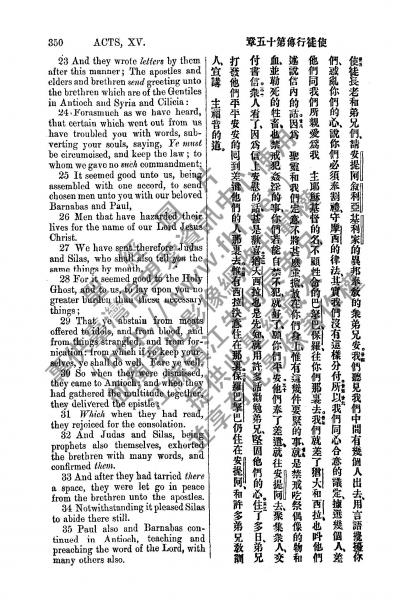 350 ACTS, XV. 章五十第傳行徒使
23 And they wrote letters by them
after this manner; The apostles
and elders and brethren send greeting unto
the brethren which are of the Gentiles
in Antioch and Syria and Cilicia:
24 Forasmuch as we have heard,
that certain which went out from us
have troubled you with words, sub-
verting your souls, saying, Ye must
be circumcised, and keep the law; to
whom we gave no such commandment;
25 It seemed good unto us, being
assembled with one accord, to send
chosen men unto you with our beloved
Barnabas and Paul,
26 Men that have hazarded their
lives for the name of our Lord Jesus
Christ.
27 We have sent therefore Judas
and Silas, who shall also tell you the
same things by mouth.
28 For it seemed good to the Holy
Ghost, and to us, to lay upon you no
greater burden than these necessary
things;
29 That ye abstain from meats
offered to idols, and from blood, and
from things strangled, and from for-
nication: from which if ye keep your-
selves, ye shall do well. Fare ye well.
30 So when they were dismissed,
they came to Antioch, and when they
had gathered the multitude together,
they delivered the epistle:
31 Which when they had read,
they rejoiced for the consolation.
32 And Judas and Silas, being
prophets also themselves, exhorted
the brethren with many words, and
confirmed them.
33 And after they had tarried there
a space, they were let go in peace
from the brethren unto the apostles.
34 Notwithstanding it pleased Silas
to abide there still.
35 Paul also and Barnabas con-
tinued in Antioch, teaching and
preaching the word of the Lord, with
many others also.
使徒長老和弟兄們、請安提阿敘利亞基利家的異邦奉教的衆弟兄安、我們聽見我們中間有幾個人出去、用言語攪擾你
們、惑亂你們的心、說你們必須奉割禮、守摩西的律法、其實我們沒有這樣分付、所以我們同心合意的議定、揀選幾個人、差
他們同我們所親愛爲我 主耶穌基督的名、不顧性命的巴拿巴保羅、往你們那裏去、我們就差了猶大和西拉、也叫他們
述說信內的話、因爲 聖靈和我們定意不將甚麼重擔放在你們身上、惟有這幾件要緊的事、就是禁戒吃祭偶像的物、和
血、並勒死的牲畜、也禁戒姦淫的事、你們若能自禁不犯就好了、願你們平安、他們奉了差遣、就往安提阿去、聚集衆人、交
付書信、衆人看了、因爲信上安慰的話甚是歡喜、猶大西拉也是先知、就用許多話勸勉弟兄、堅固他們的心、住了多日、弟兄
打發他們平平安安的回到差遣他們的人那裏去、惟有西拉決意住在那裏、保羅巴拿巴仍住在安提阿、和許多弟兄教訓
人、宣講 主福音的道、